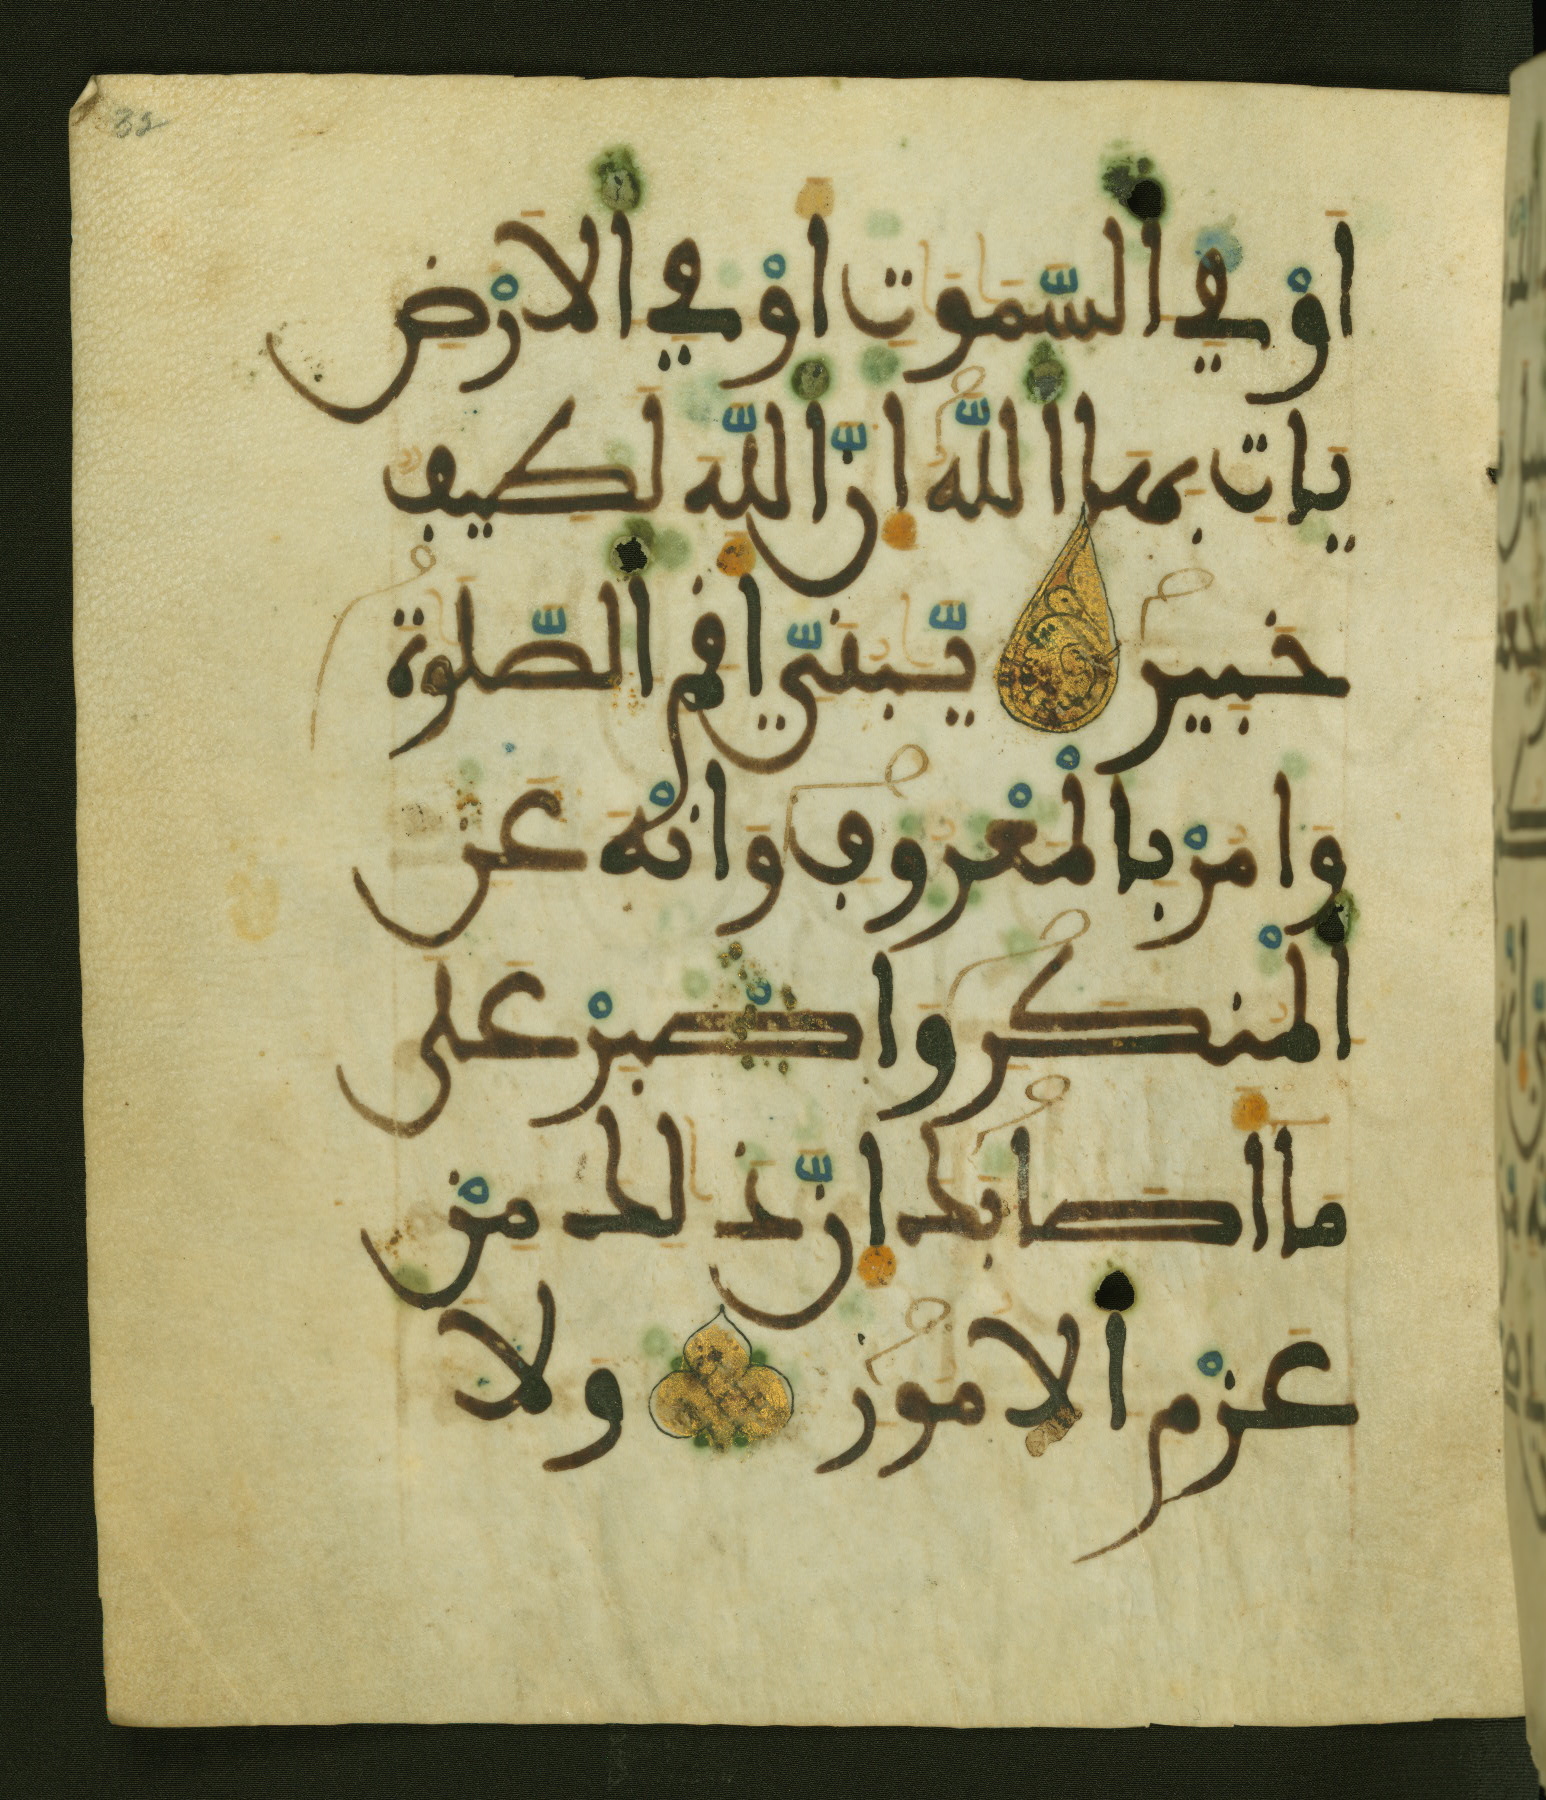 32
اوْ فِي السَّمَوٰتِ اوْ فِي الَارْضِ
يَاتِ بِهَا اللَّهُ إِنَّ اللَّهَ لَطِيفٌ
خَبِيرٌ يَٰبُنَيِّ أَقِمِ الصَّلَوٰةَ
وَامُرْ بِالْمَعْرُوفِ وَانْهَ عَنِ
الْمُنكَرِ وَاصْبِرْ عَلَى
مَا أَصَابَكَ إِنَّ ذَٰلِكَ مِنْ
عَزْمِ الُامُورِ وَلَا